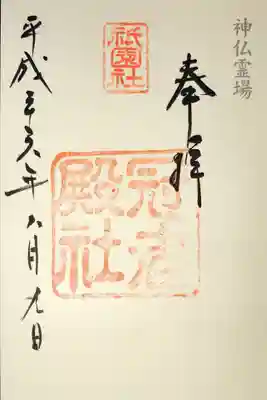 神仏霊場
奉拝
祇園社
冠者
殿社
平成二六年八月九日